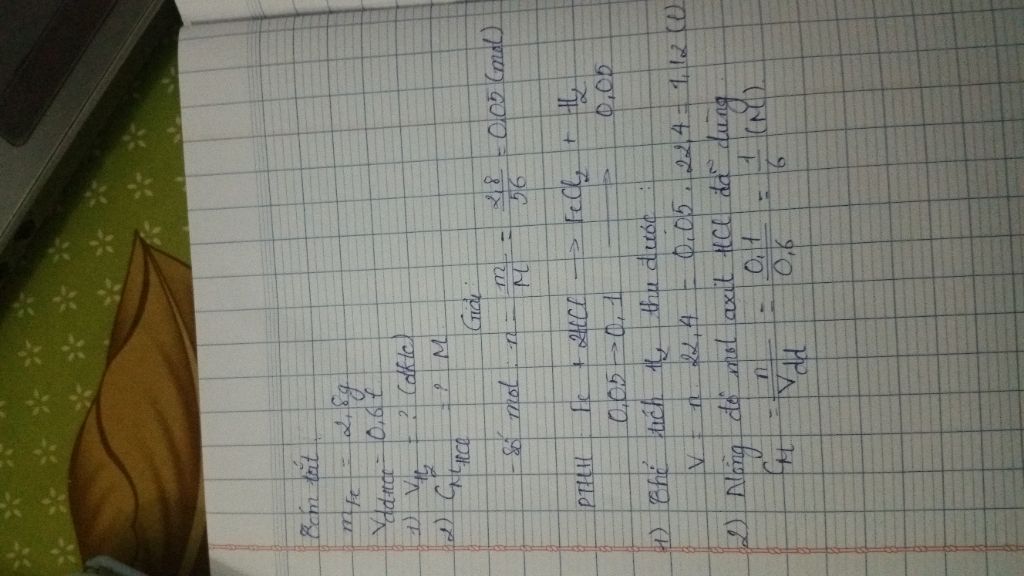 Tóm tắt:
mFe = 2,8g
VddHCl = 0,6l
1) VH2 = ? (đktc)
2) CMHCl = ? M
Giải:
- Số mol : n = m/M = 2,8/56 = 0,05 (mol)
PTHH : Fe + 2HCl → FeCl2 + H2
0,05 → 0,1 → 0,05
1) Thể tích H2 thu được :
V = n . 22,4 = 0,05 . 22,4 = 1,12 (l)
2) Nồng độ mol axit HCl đã dùng
CM = n/Vdd = 0,1/0,6 = 1/6 (M).